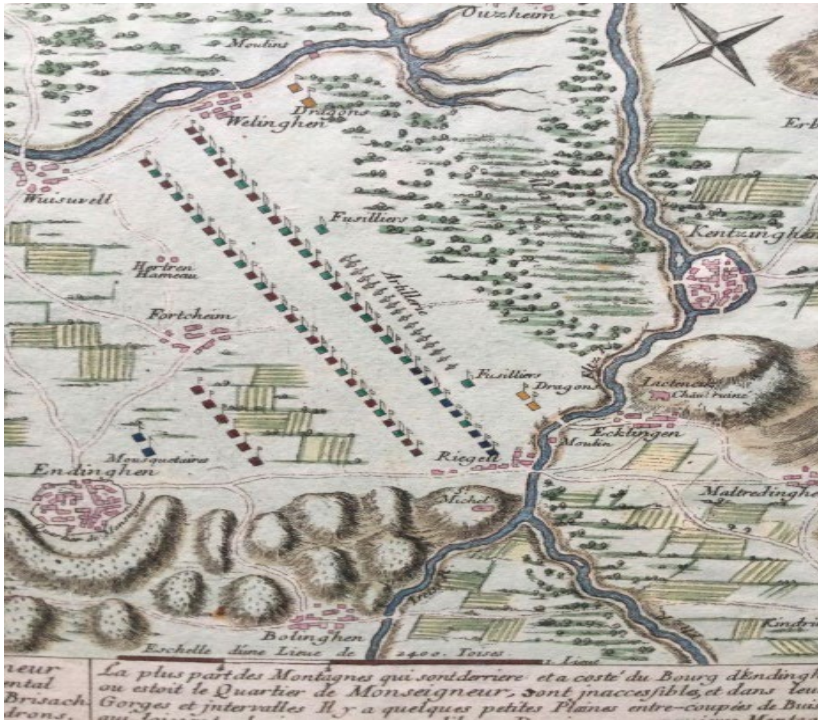 Ouzheim
Moulins
Dragons
Welinghen
Wuisuvell
Fusilliers
Kentzinghen
Hertren
Hameau
Artillerie
Fortcheim
Eltz
Fusilliers
Dragons
Chau
Ecklingen
Mousquetaires
Riegell
Moulin
Endinghen
St.
Michel
Maltredinghe
Bolinghen
Kindri
Eschelle d'une Lieue de 2400. Toises
1. Lieue
neur
ental
Brisach
drons,
La plus part des Montagnes qui sont derriere et a costé du Bourg d'Endingh
ou estoit le Quartier de Monseigneur, sont jnaccessibles, et dans leu
Gorges et jntervalles Il y a quelques petites Plaines entre-coupées de Buis